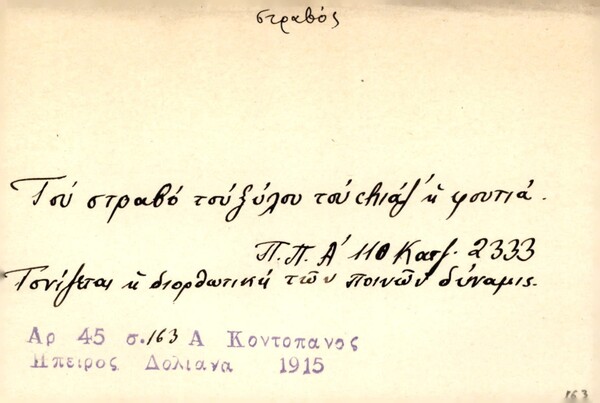 στραβός
Τού στραβό τού ξύλου τού σιάζ' ἡ φουτιά.
Π.Π. Α' 110 Κατζ. 2333
Τονίζεται ἡ διορθωτική τῶν ποινῶν δύναμις.
Αρ 45 σ. 163 Α Κοντοπανος
Ηπειρος Δολιανα 1915
163